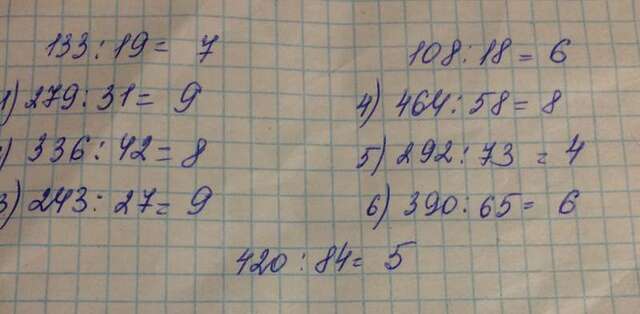 133 : 19 = 7
1) 279 : 31 = 9
) 336 : 42 = 8
3) 243 : 27 = 9
108 : 18 = 6
4) 464 : 58 = 8
5) 292 : 73 = 4
6) 390 : 65 = 6
420 : 84 = 5